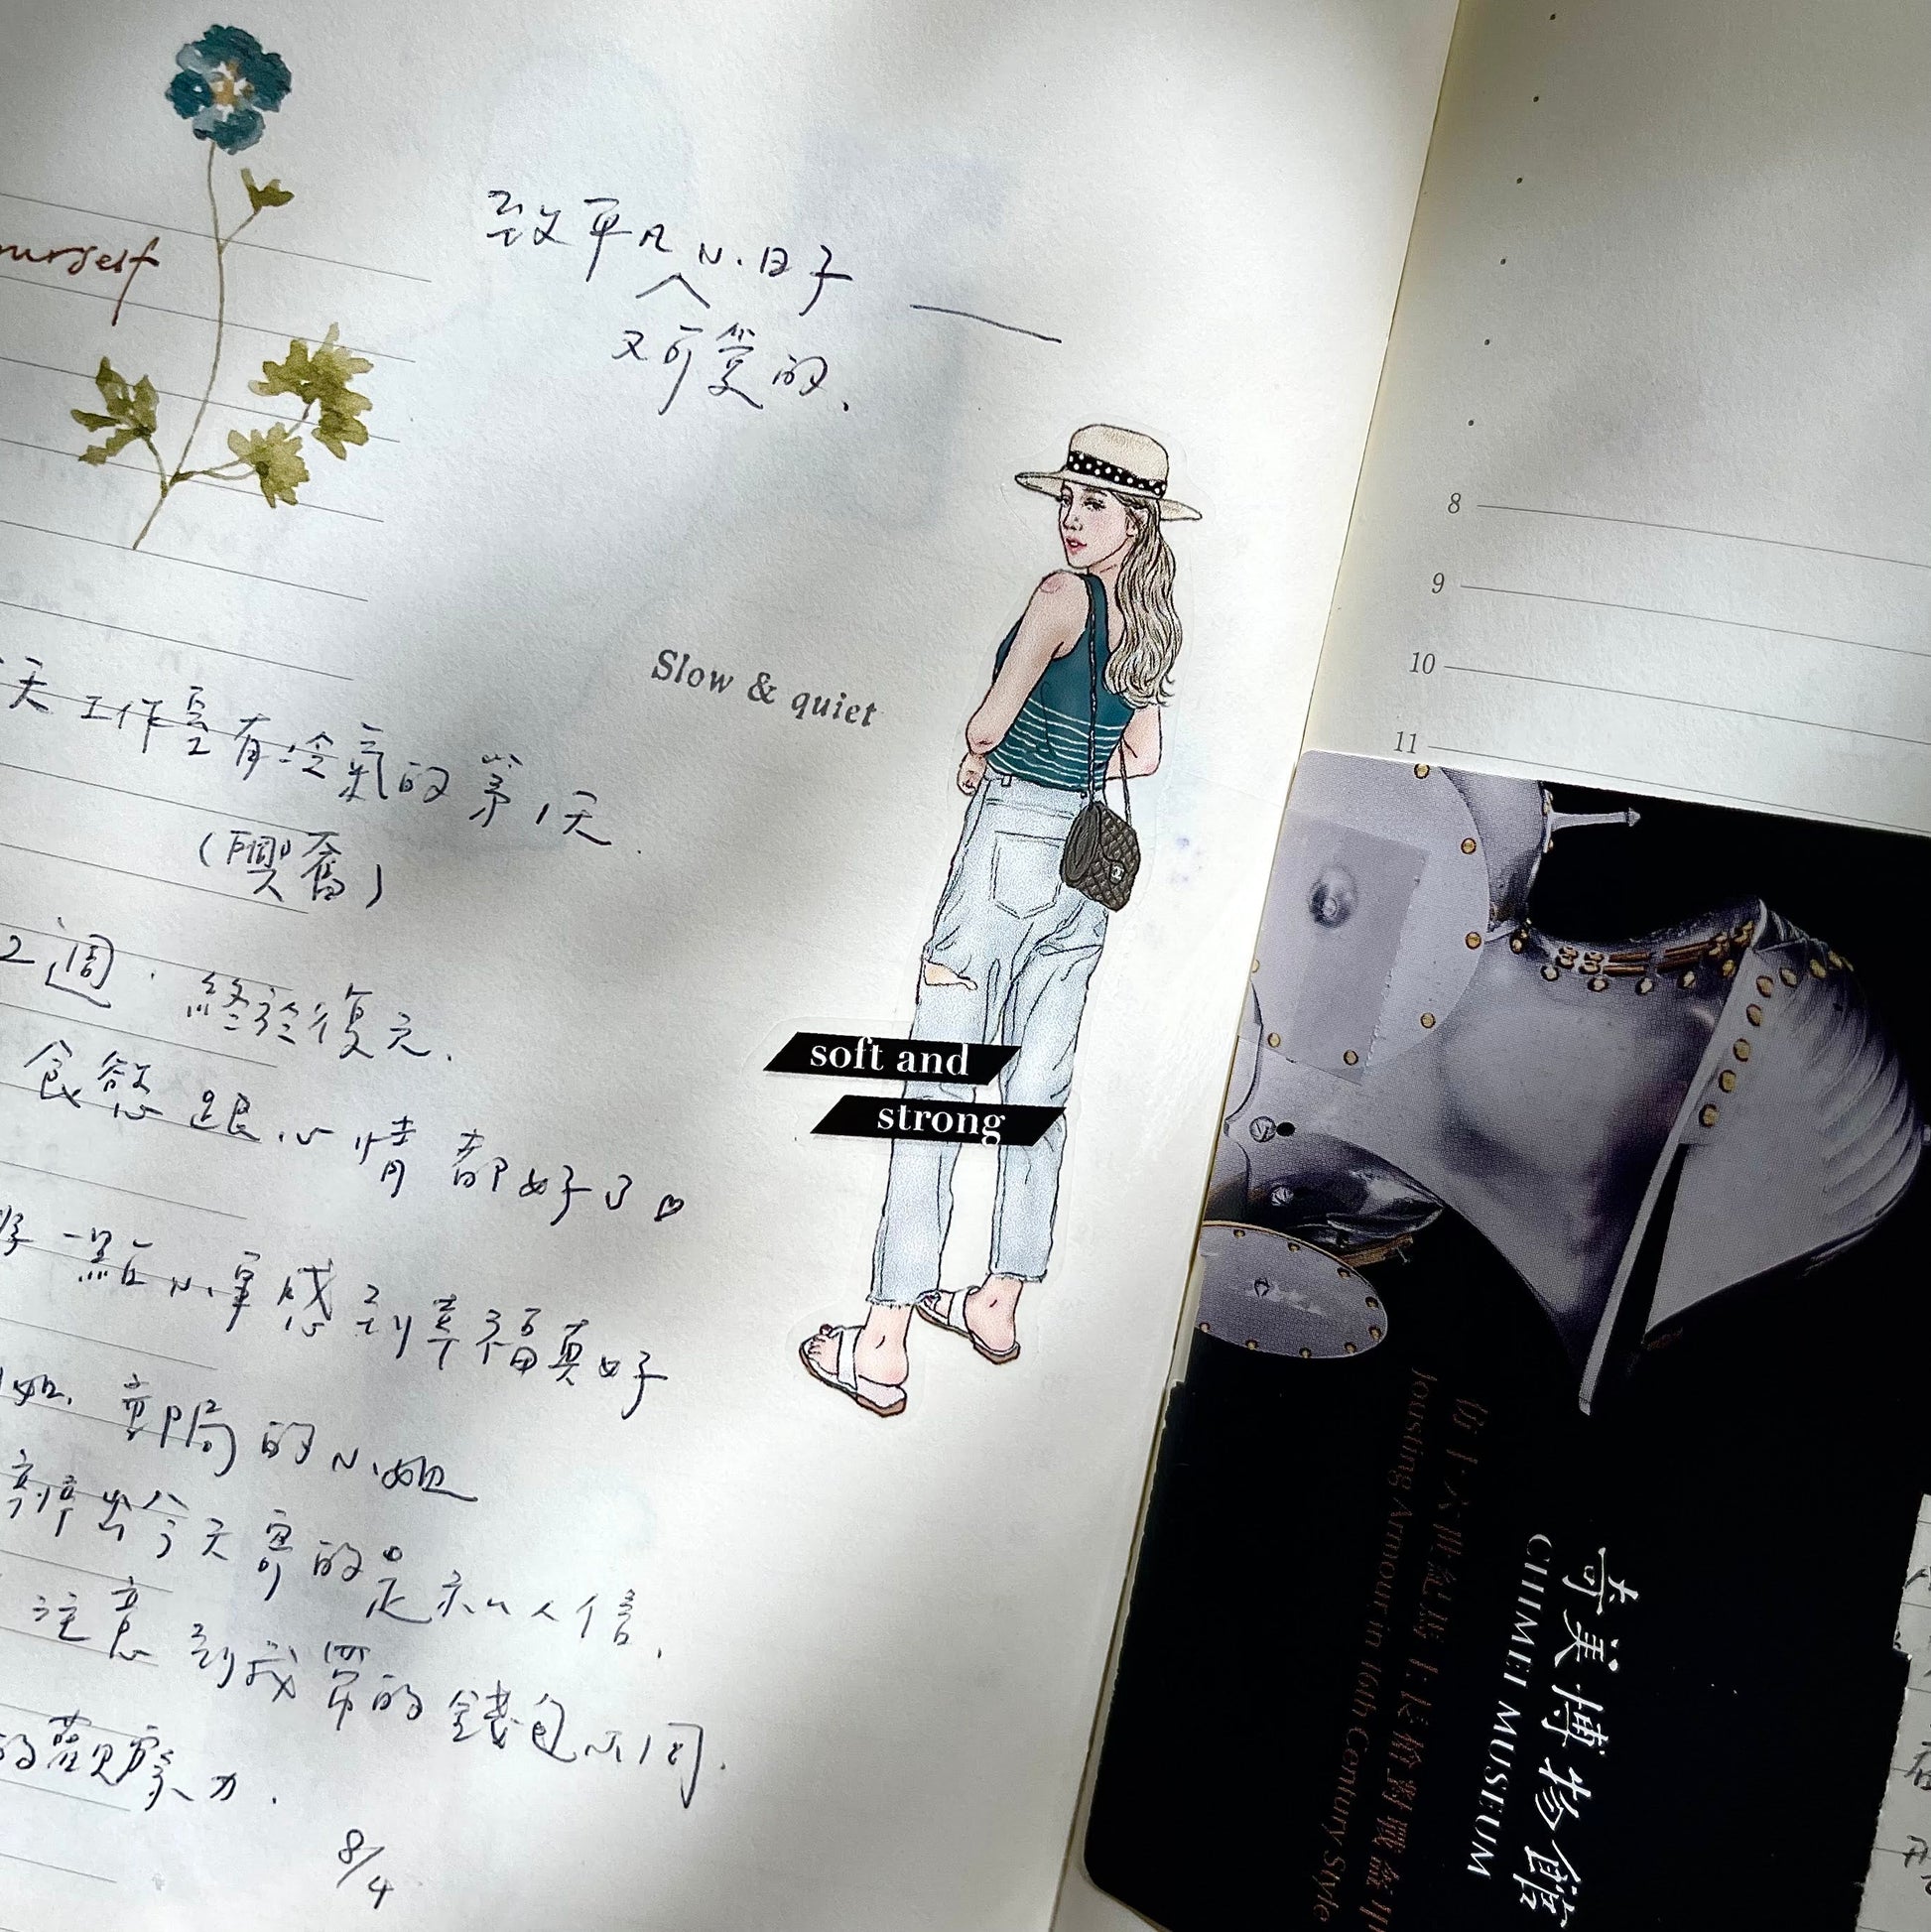 致平凡小日子
又可愛的、
Slow & quiet
天工作室有冷氣的第1天.
(興奮)
2週. 終於復元.
食慾跟心情都好了♡
一點小事感到幸福真好
郵局的小姐
辨出今天寄的是私人信、
注意到我買的錢包不同.
的觀察力.
8/4
soft and
strong
8
9
10
11
仿十六世紀馬上長槍對戰盔甲
Jousting Armour in 16th Century Style
奇美博物館
CHIMEI MUSEUM